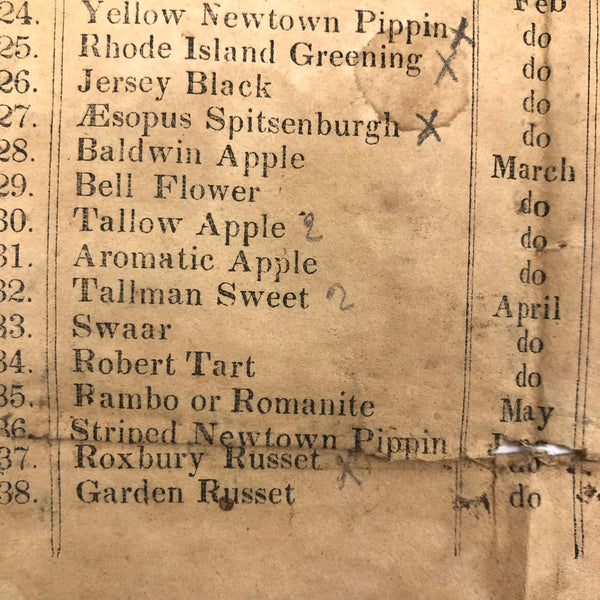 Feb
24. Yellow Newtown Pippin x do
25. Rhode Island Greening x do
26. Jersey Black do
27. Æsopus Spitsenburgh x do
28. Baldwin Apple March
29. Bell Flower do
30. Tallow Apple 2 do
31. Aromatic Apple do
32. Tallman Sweet 2 April
33. Swaar do
34. Robert Tart do
35. Rambo or Romanite May
36. Striped Newtown Pippin
37. Roxbury Russet x do
38. Garden Russet do